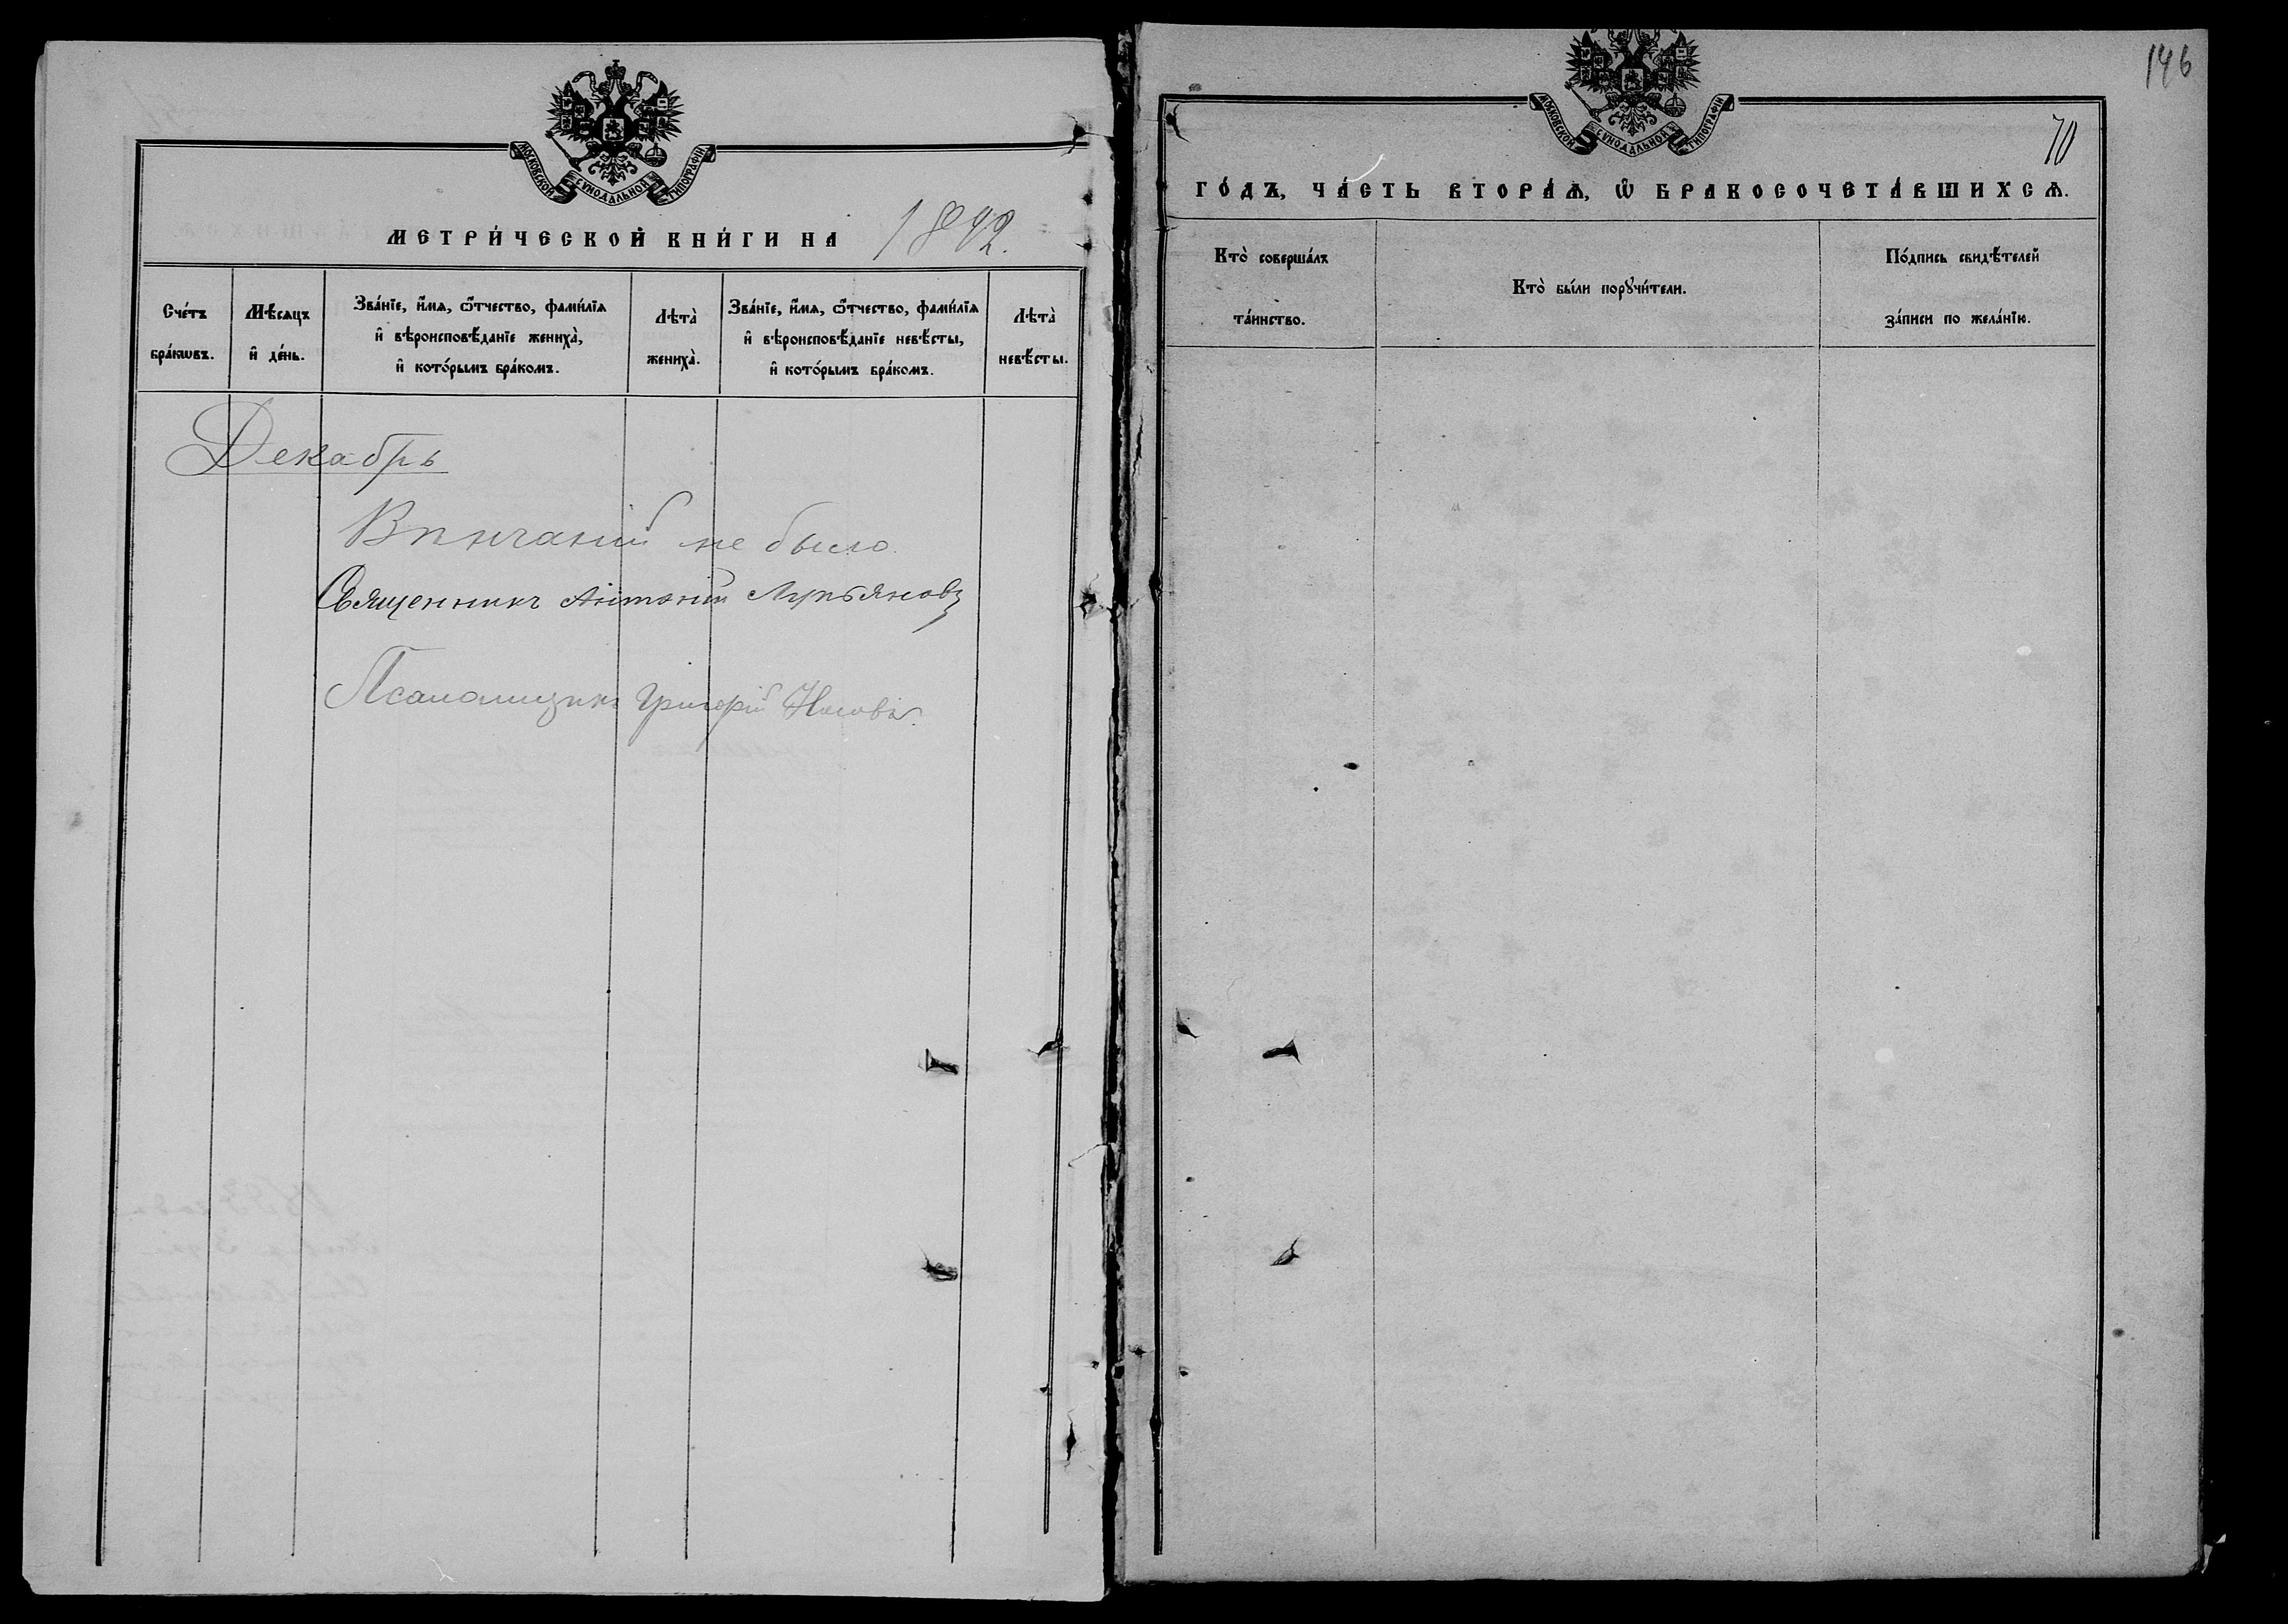 МОСКОВСКОЙ СѴНОДАЛЬНОЙ ТИПОГРАФІИ
МЕТРИ́ЧЕСКОЙ КНИ́ГИ НА 1892.
Сче́тъ бра́кωвъ.
Мѣ́сяцъ и҆ де́нь.
Зва́нїе, и҆́мѧ, ѻ҆́тчество, фами́лїѧ
и҆ вѣроисповѣ́данїе жениха̀,
и҆ кото́рымъ бра́комъ.
Лѣта̀ жениха̀.
Зва́нїе, и҆́мѧ, ѻ҆́тчество, фами́лїѧ
и҆ вѣроисповѣ́данїе невѣ́сты,
и҆ кото́рымъ бра́комъ.
Лѣта̀ невѣ́сты.
Декабрь
Вѣнчаній не было.
Священникъ Антоній Лукьяновъ
Псаломщикъ Григорій Носовъ.
146
МОСКОВСКОЙ СѴНОДАЛЬНОЙ ТИПОГРАФІИ
70
ГО́ДЪ, ЧА́СТЬ ВТОРА́Ѧ, Ѡ҆ БРАКОСОЧЕТА́ВШИХСѦ.
Кто̀ соверша́лъ
та́инство.
Кто̀ бы́ли порꙋчи́тели.
По́дпись свидѣ́телей
за́писи по жела́нїю.